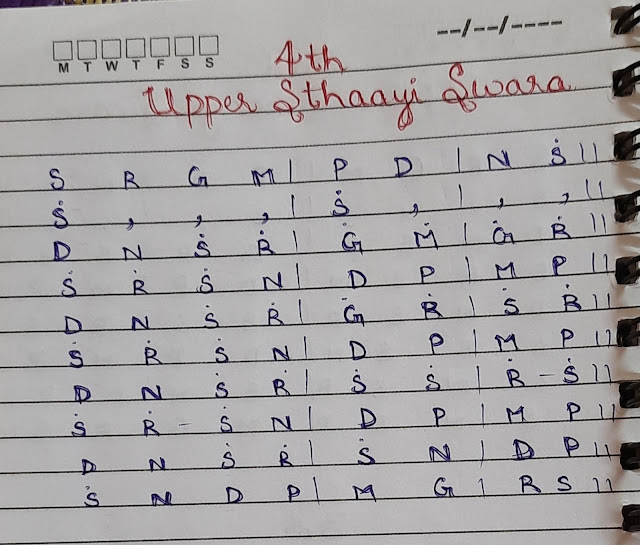 --/--/----
M T W T F S S
4th
Upper Sthaayi Swara
S R G M | P D | N Ṡ ||
Ṡ , , , | Ṡ , | , , ||
D N Ṡ Ṙ | Ġ Ṁ | Ġ Ṙ ||
Ṡ Ṙ Ṡ N | D P | M P ||
D N Ṡ Ṙ | Ġ Ṙ | Ṡ Ṙ ||
Ṡ Ṙ Ṡ N | D P | M P ||
D N Ṡ Ṙ | Ṡ Ṡ | Ṙ - Ṡ ||
Ṡ Ṙ - Ṡ N | D P | M P ||
D N Ṡ Ṙ | Ṡ N | D P ||
Ṡ N D P | M G | R S ||